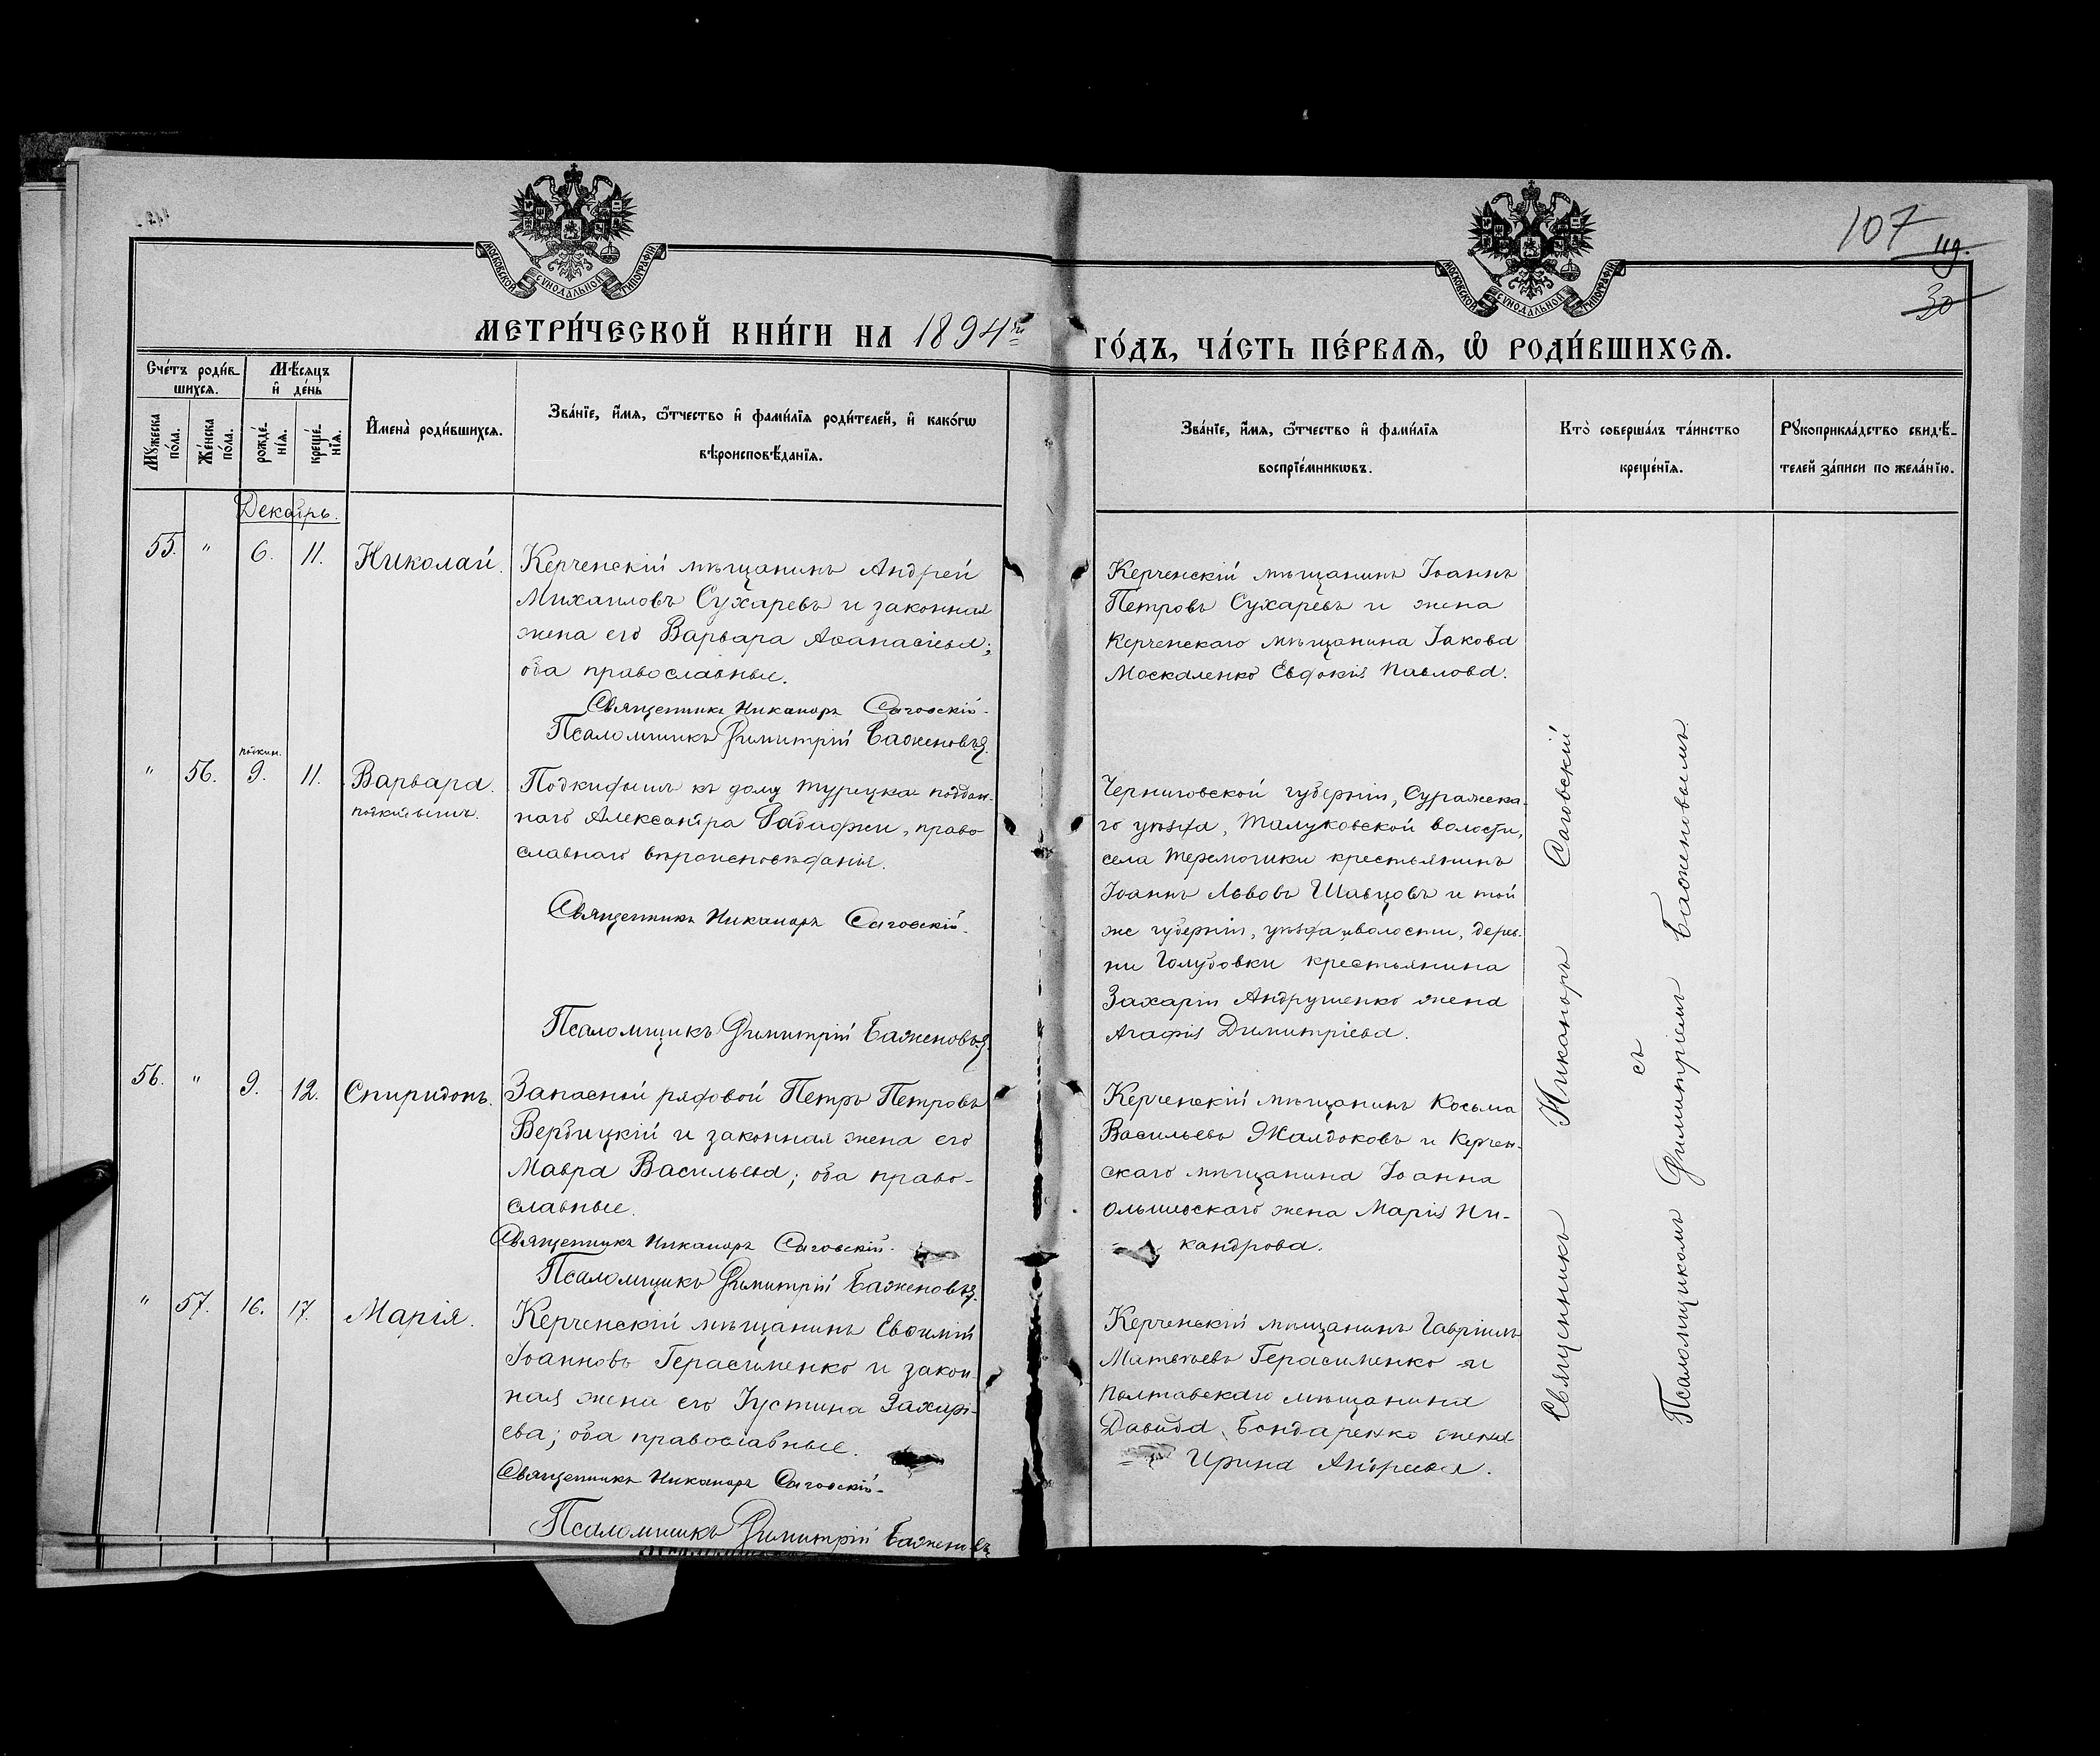 107
119.
30
МОСКОВСКОЙ СѴНОДАЛЬНОЙ ТИПОГРАФІИ
МОСКОВСКОЙ СѴНОДАЛЬНОЙ ТИПОГРАФІИ
МЕТРИ́ЧЕСКОЙ КНИ́ГИ НА 1894й
ГО́ДЪ, ЧА́СТЬ ПЕ́РВАѦ, Ѡ҆ РОДИ́ВШИХСѦ.
Сче́тъ роди́в-
шихсѧ.
Мѣ́сѧцъ
и҆ де́нь
Мꙋ́жеска по́ла.
Же́нска по́ла.
рожде́-
нїѧ.
креще́-
нїѧ.
И҆мена̀ роди́вшихсѧ.
Зва́нїе, и҆́мѧ, ѻ҆́тчество и҆ фами́лїѧ роди́телей, и҆ како́гѡ
вѣроисповѣ́данїѧ.
Зва́нїе, и҆́мѧ, ѻ҆́тчество и҆ фами́лїѧ
воспрїе́мникѡвъ.
Кто̀ соверша́лъ та́инство
креще́нїѧ.
Рꙋкоприкла́дство свидѣ́-
телей за́писи по жела́нїю.
Декабрь.
55. " 6. 11. Николай.
Керченскій мѣщанинъ Андрей
Михаиловъ Сухаревъ и законная
жена его Варвара Аѳанасіева;
оба православные.
Священникъ Никаноръ Саговскій.
Псаломщикъ Димитрій Баженовъ.
Керченскій мѣщанинъ Іоаннъ
Петровъ Сухаревъ и жена
Керченскаго мѣщанина Іакова
Москаленко Евдокія Павлова.
подкин.
" 56. 9. 11. Варвара.
подкидышъ.
Подкидышъ къ дому турецка поддан-
наго Александра право
славнаго вѣроисповѣданія.
Священникъ Никаноръ Саговскій.
Псаломщикъ Димитрій Баженовъ.
Черниговской губерніи, Суражска-
го уѣзда, волости,
села крестьянинъ
Іоаннъ Львовъ Шавцовъ и той
же губерніи, уѣзда и волости, дерев-
ни Голубовки крестьянина
Захаріи Андрушенко жена
Агафія Димитріева.
56. " 9. 12. Спиридонъ.
Запасной рядовой Петръ Петровъ
Вербицкій и законная жена его
Мавра Васильева; оба право-
славные.
Священникъ Никаноръ Саговскій.
Псаломщикъ Димитрій Баженовъ.
Керченскій мѣщанинъ Косьма
Васильевъ Жалдоковъ и Керчен-
скаго мѣщанина Іоанна
Ольшевскаго жена Марія Ни-
кандрова.
" 57. 16. 17. Марія.
Керченскій мѣщанинъ Евѳимій
Іоанновъ Герасименко и закон-
ная жена его Іустина Захарі-
ева; оба православные.
Священникъ Никаноръ Саговскій.
Псаломщикъ Димитрій Баженовъ
Керченскій мѣщанинъ Гавріилъ
Матвѣевъ Герасименко и
Полтавскаго мѣщанина
Давида Бондаренко жена
Ирина Андреева.
Священникъ Никаноръ Саговскій
съ
Псаломщикомъ Димитріемъ Баженовымъ.